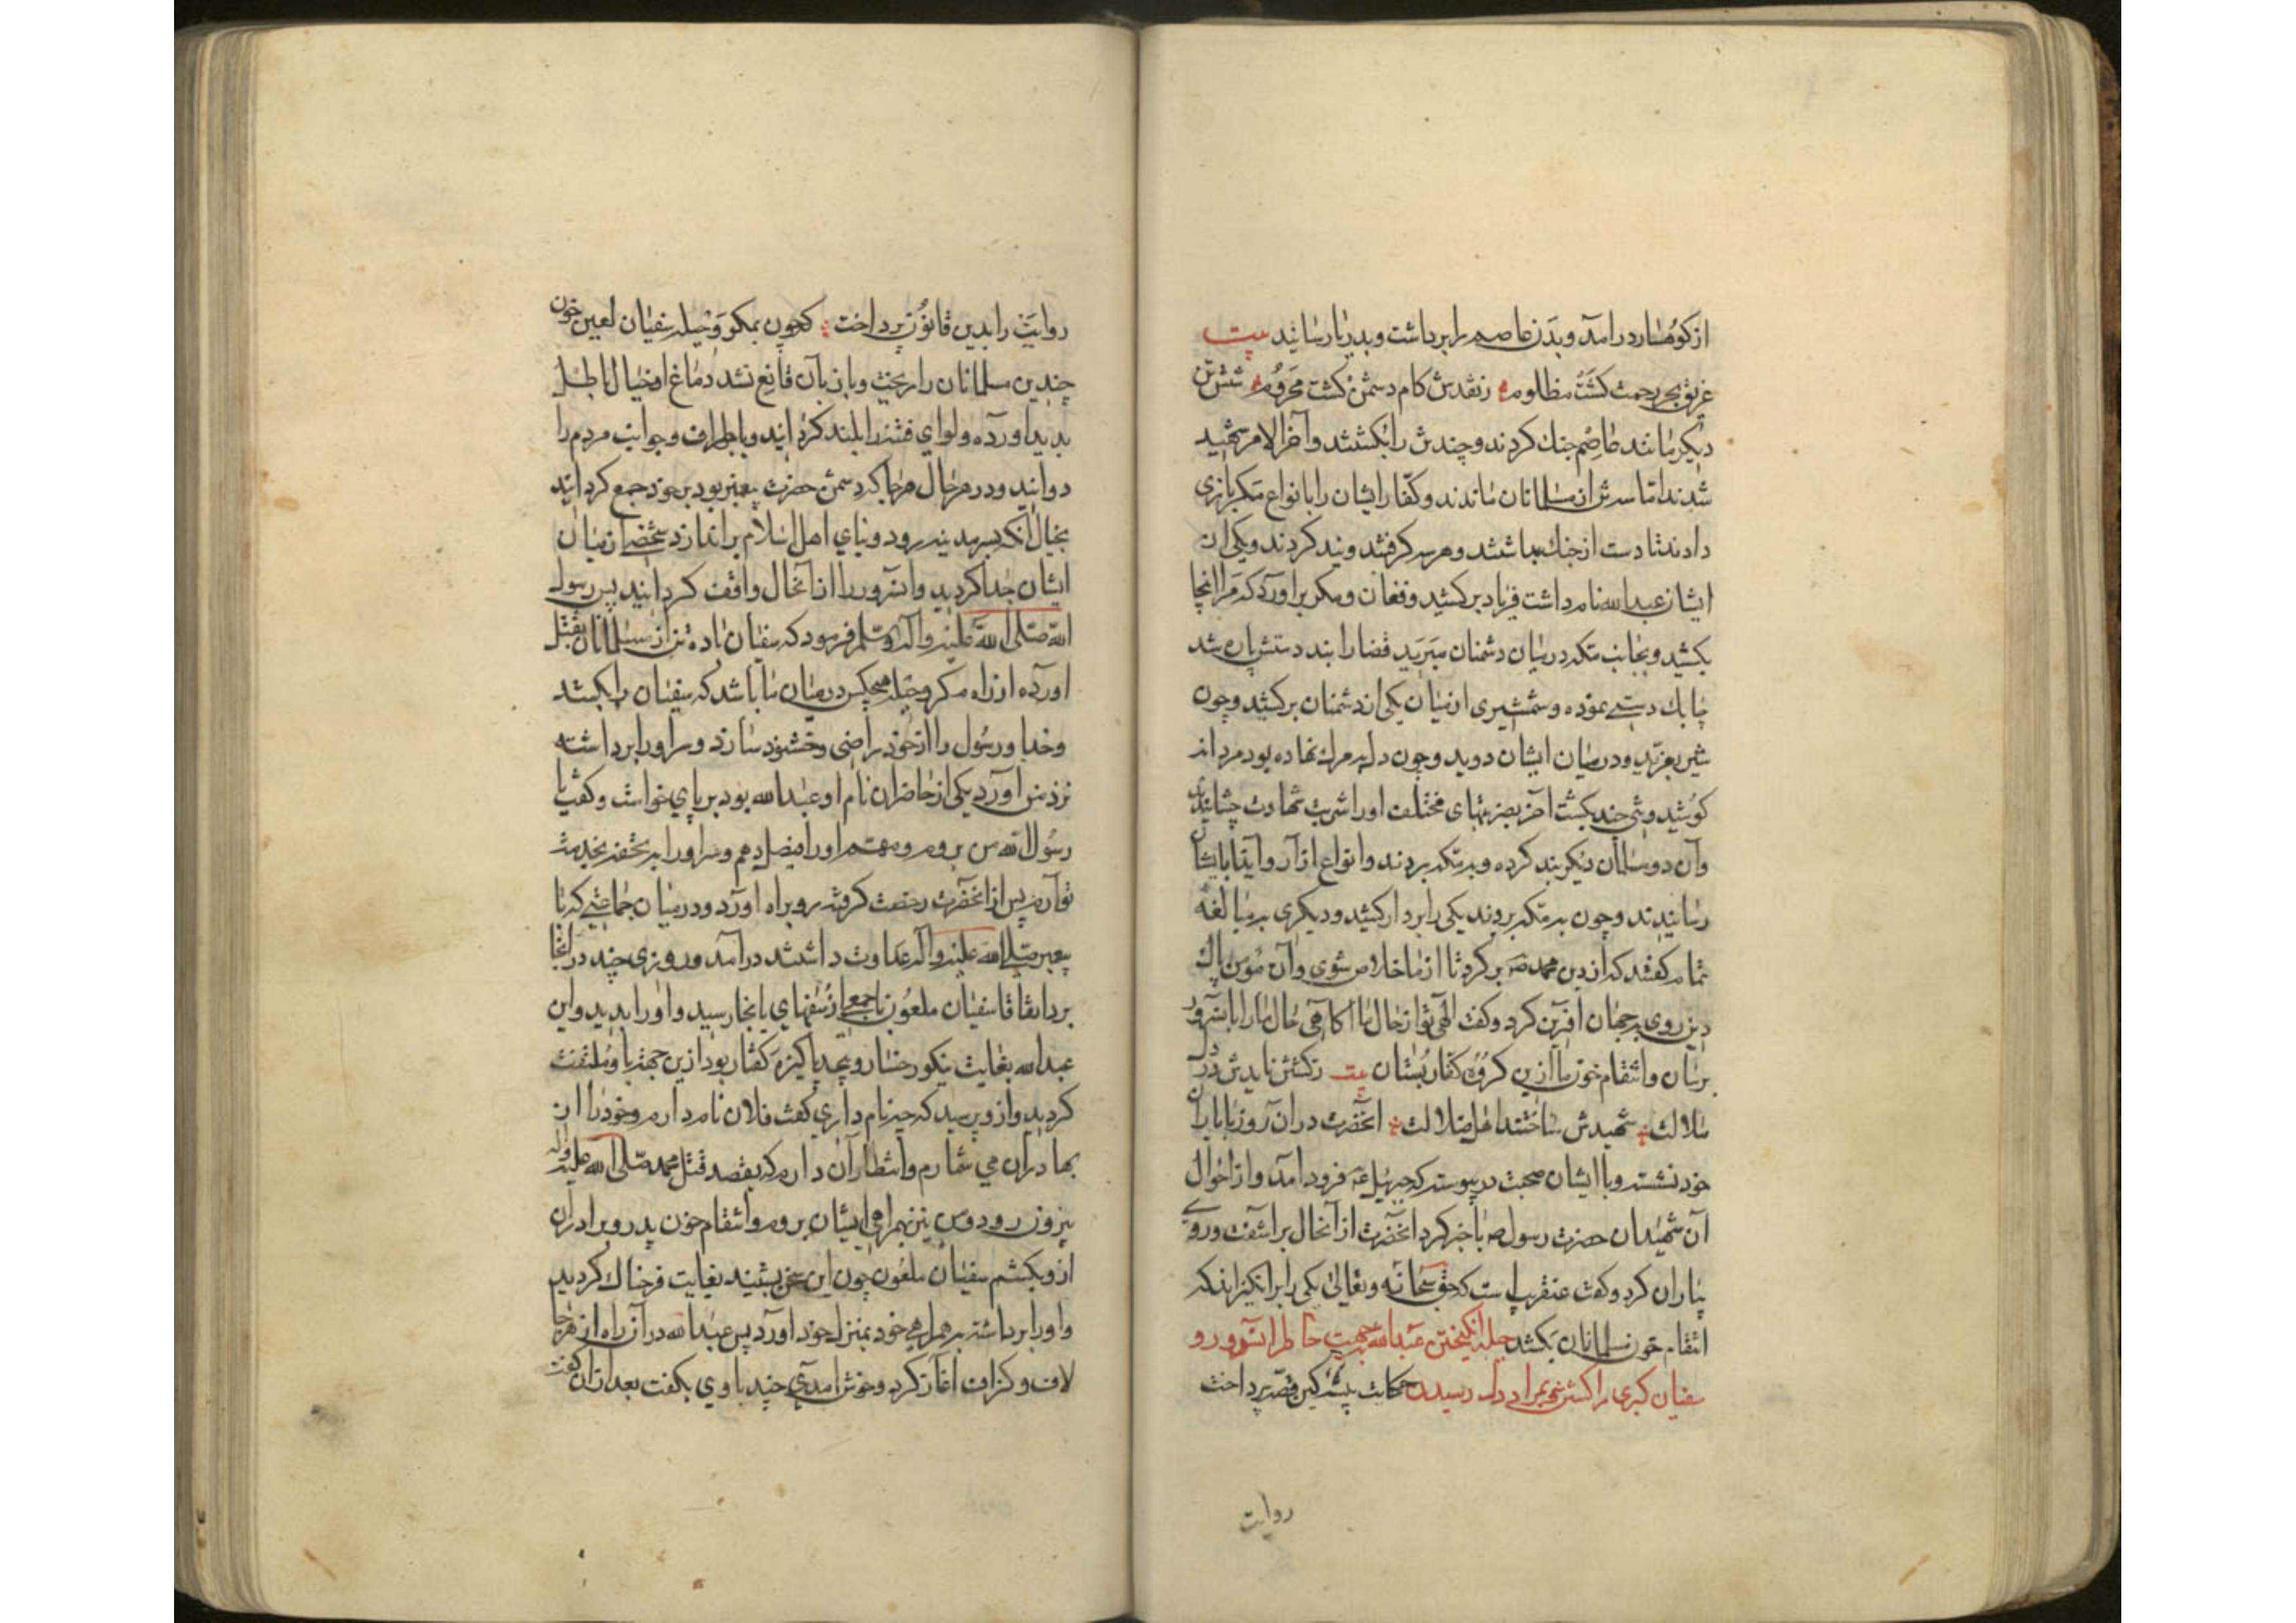 از کوهسار درآمد و بدن عاصم را برداشت و بدریا رسانید بیت
غریق بحر رحمت کشت مظلوم زنقدش کام دشمن کشت محروم شش تن
دیکر مانند عاصم جنك کردند و چندش را بکشتند و آخر الامر شهید
شدند اما سه تن از مسلمانان ماندند و کفار ایشان را بانواع مکر بازی
دادند تا دست از جنك بداشتند و هر سه کرفتند و بند کردند و یکی از
ایشان عبدالله نام داشت فریاد برکشید و فغان و مکر براورد که مرا اینجا
بکشید و بجانب مکه درمیان دشمنان مبرید قضا را بند دستش پاره شد
چابك دستی نموده و شمشیری از میان یکی از دشمنان برکشید و چون
شیر بغرید و درمیان ایشان دوید و چون دل بر مرك نهاده بود مردانه
کوشید و تنی چند بکشت آخر بضربتهای مختلف او را شربت شهادت چشانیدند
وآن دو مسلمان دیکر بند کرده و بمکه بردند و انواع ازار و ایذا بایشان
رسانیدند و چون بمکه بردند یکی را بر دار کشیدند و دیکری بمبالغه
تمام کفتند که از دین محمد ص برکرد تا از ما خلاص شوی وآن مؤمن پاك
دین روی بر جهان آفرین کرد و کفت الهی تو از حال ما اکاهی حال ما را بآنسرور
برسان وانتقام خون ما ازین کروه کفار بستان بیت زکشتن نایدش در دل
ملالت شهیدش ساختند اهل ضلالت انحضرت در آن روز با یاران
خود نشسته و با ایشان صحبت در پیوسته که جبرئیل ع فرود آمد و از احوال
آن شهیدان حضرت رسول ص با خبر کرد انحضرت از آنحال برآشفت و روی
بیاران کرد و کفت عنقریب است که حق سبحانه و تعالی یکی را برانکیزاند که
انتقام خون مسلمانان بکشد حیله انکیختن عبدالله جهت خاطر آنسرور و
سفیان کبری را کشتن و بمراد دل رسیدن حکایت پیشه کین قصه پرداخت
روایت
روایت را بدین قانون پرداخت که چون بمکر و حیله سفیان لعین خون
چندین مسلمانان را ریخت و بان قانع نشد دماغ او خیال باطل
پدید آورده و لوای فتنه را بلند کردانید و باطراف و جوانب مردم را
دوانید و در هر حال هر جا که دشمن حضرت پیغمبر بود بر خود جمع کردانید
بخیال انکه بمدینه رود و بنای اهل اسلام براندازد شخصی از میان
ایشان جدا کردید و آنسرور را از آنحال واقف کردانید پس رسول
الله صلی الله علیه و آله و سلم فرمود که سفیان ده تن از مسلمانان بقتل
اورده از راه مکر و حیله هیچکس درمیان ما باشد که سفیان را بکشد
وخدا و رسول را از خود راضی وخشنود سازد و سر او را برداشته
نزد من آورد یکی از حاضران نام او عبدالله بود بر پای خواست و کفت یا
رسول الله من بروم و مهم او را فیصل دهم و سر او را بتحفه بخدمت
تو آرم پس از انحضرت رخصت کرفته رو براه اورد و درمیان جماعتی که با
پیغمبر صلی الله علیه و آله عداوت داشتند درآمد و روزی چند در انجا
بود اتفاقا سفیان ملعون با جمعی از سفهای بانجا رسید و او را بدید و این
عبدالله بغایت نیکو رخسار و پاکیزه کفتار بود ازین جهة با و ملتفت
کردید و ازو پرسید که چه نام داری کفت فلان نام دارم و خود را از
بهادران می شمارم و انتظار آن دارم که بقصد قتل محمد صلی الله علیه و اله
بیرون رود و من نیز بهمراهی ایشان بروم و انتقام خون پدر و برادران
ازو بکشم سفیان ملعون چون این سخن بشنید بغایت فرحناك کردید
و او را برداشته بهمراهی خود بمنزل خود اورد پس عبدالله در آن راه از هر جا
لاف و کزاف آغاز کرد و خوش آمدی چند باوی بکفت بعد از آن کفت